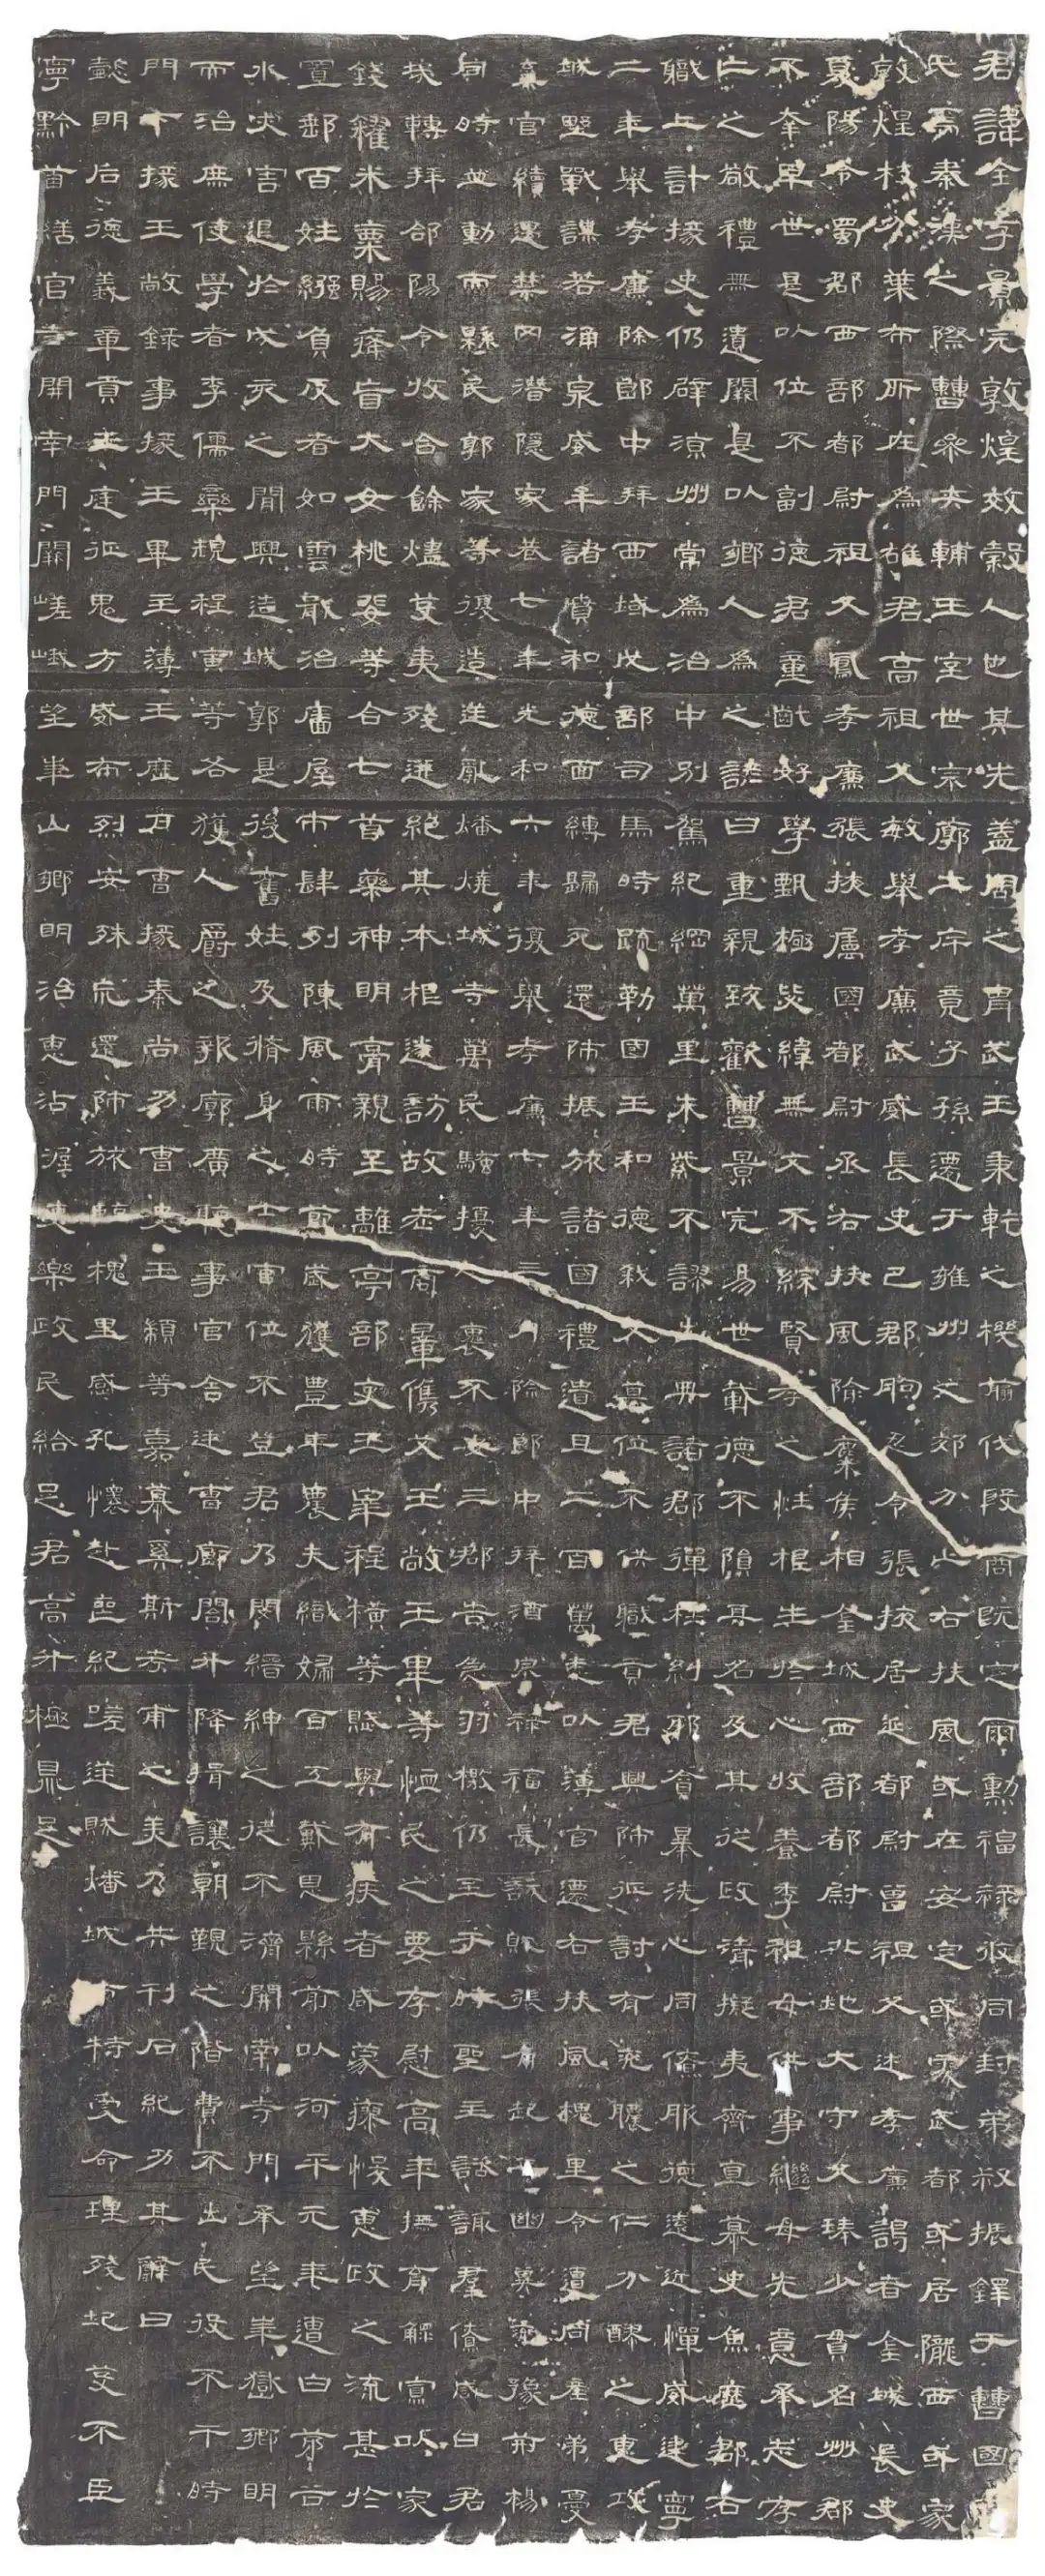 君諱全字景完敦煌效穀人也其先蓋周之胄武王秉乾之機翦伐殷商既定爾勳福祿攸同封弟叔振鐸于曹國
氏焉秦漢之際曹參夾輔王室世宗廓土斥竟子孫遷于雍州之郊分止右扶風或在安定或處武都或居隴西或家
敦煌枝分葉布所在為雄君高祖父敏舉孝廉武威長史巴郡朐忍令張掖居延都尉曾祖父述孝廉謁者金城長史
夏陽令蜀郡西部都尉祖父鳳孝廉張掖屬國都尉丞右扶風隃麋侯相金城西部都尉北地大守父琫少貫名州郡
不幸早世是以位不副德君童齔好學甄極毖緯無文不綜賢孝之性根生於心收養季祖母供事繼母先意承志存
亡之敬禮無遺闕是以鄉人為之諺曰重親致歡曹景完易世載德不隕其名及其從政清擬夷齊直慕史魚歷郡右
職上計掾史仍辟涼州常為治中別駕紀綱萬里朱紫不謬出典諸郡彈枉糾邪貪暴洗心同僚服德遠近憚威建寧
二年舉孝廉除郎中拜西域戊部司馬時疏勒國王和德弒父篡位不供職貢君興師征討有兗膿之仁分醪之惠攻
城野戰謀若涌泉威牟諸賁和德面縛歸死還師振旅諸國禮遺且二百萬悉以薄官遷右扶風槐里令遭同產弟憂
棄官續遇禁冈潛隱家巷七年光和六年復舉孝廉七年三月除郎中拜酒泉祿福長訞賊張角起兵幽冀兗豫荊楊
同時並動而縣民郭家等復造逆亂燔燒城寺萬民騷擾人裹不安三郡告急羽檄仍至于時聖主諮諏群僚咸曰君
哉轉拜郃陽令收合餘燼芟夷殘迸絕其本根遂訪故老商量儁艾王敞王畢等恤民之要存慰高年撫育鰥寡以家
錢糴米粟賜癃盲大女桃婓等合七首藥神明膏親至離亭部吏王宰程橫等賦與有疾者咸蒙瘳悛惠政之流甚於
置郵百姓繦負反者如雲戢治廧屋市肆列陳風雨時節歲獲豐年農夫織婦百工戴恩縣前以河平元年遭白茅谷
水災害退於戊亥之間興造城郭是後舊姓及脩身之士官位不登君乃閔縉紳之徒不濟開南寺門承望華嶽鄉明
而治庶使學者李儒欒規程寅等各獲人爵之報廓廣聽事官舍廷曹廊閤升降揖讓朝覲之階費不出民役不干時
門下掾王敞錄事掾王畢主薄王歷戶曹掾秦尚功曹史王顓等嘉慕奚斯考甫之美乃共刊石紀功其辭曰
懿明后德義章貢王庭征鬼方威布烈安殊荒還師旅臨槐里感孔懷赴喪紀嗟逆賊燔城市特受命理殘圮芟不臣
寧黔首繕官寺開南門闕嵯峨望華山鄉明治惠沾渥吏樂政民給足君高升極鼎足